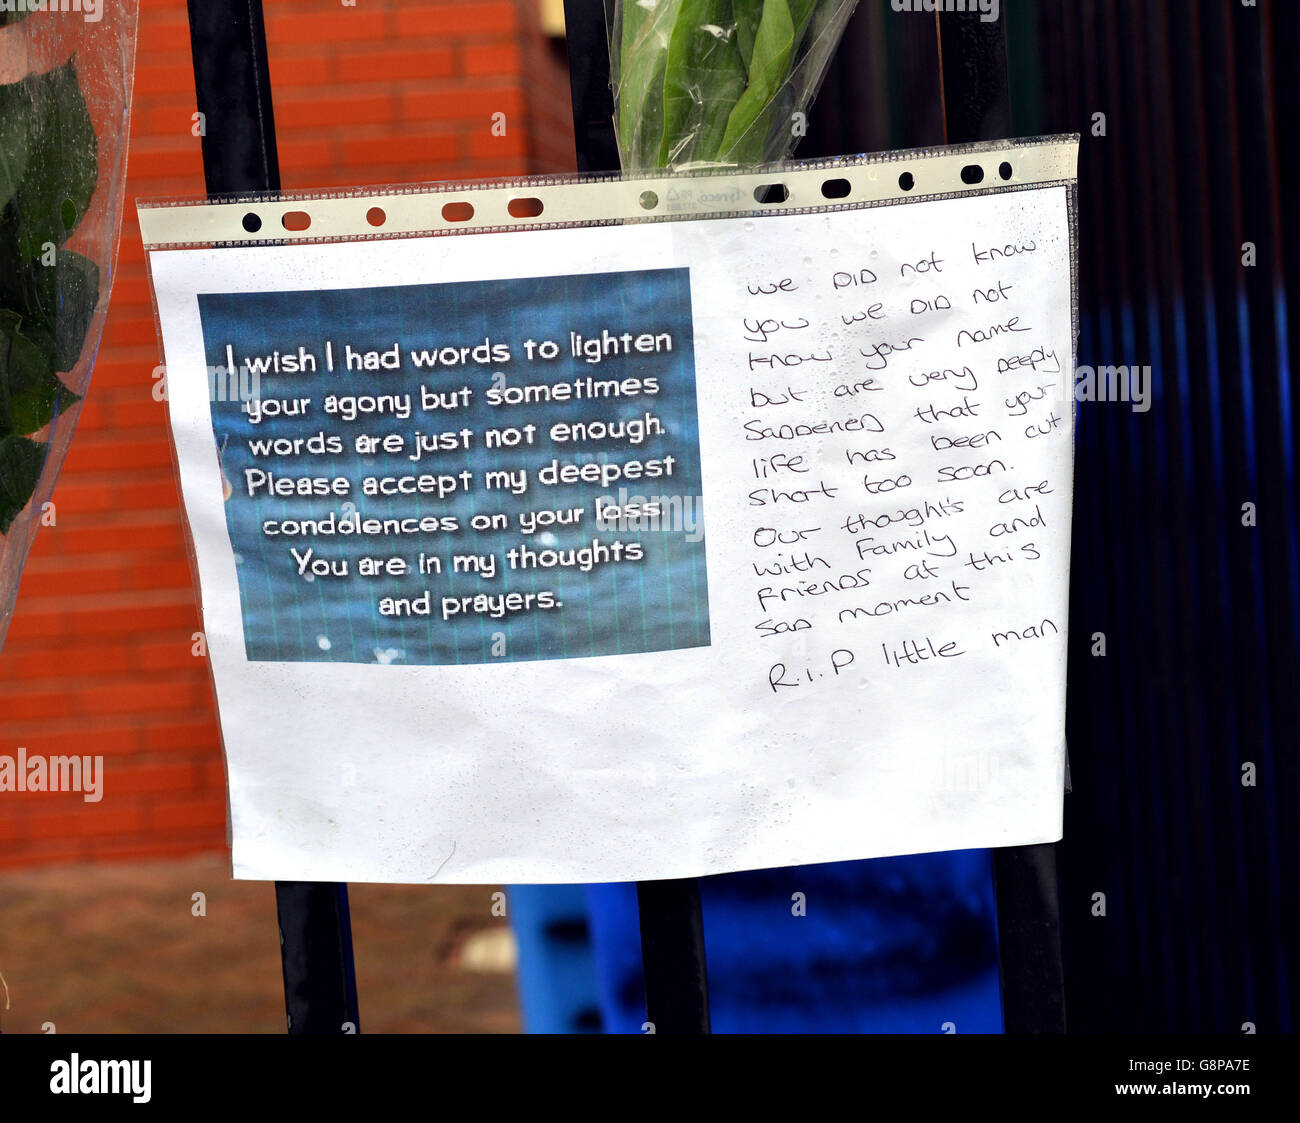 I wish I had words to lighten
your agony but sometimes
words are just not enough.
Please accept my deepest
condolences on your loss.
You are in my thoughts
and prayers.
we DID not know
you we DID not
know your name
but are very DEEPly
SADDENED that your
life has been cut
short too soon.
Our thoughts are
with Family and
Friends at this
SAD moment
R.I.P little man
alamy
alamy
Image ID: G8PA7E
www.alamy.com